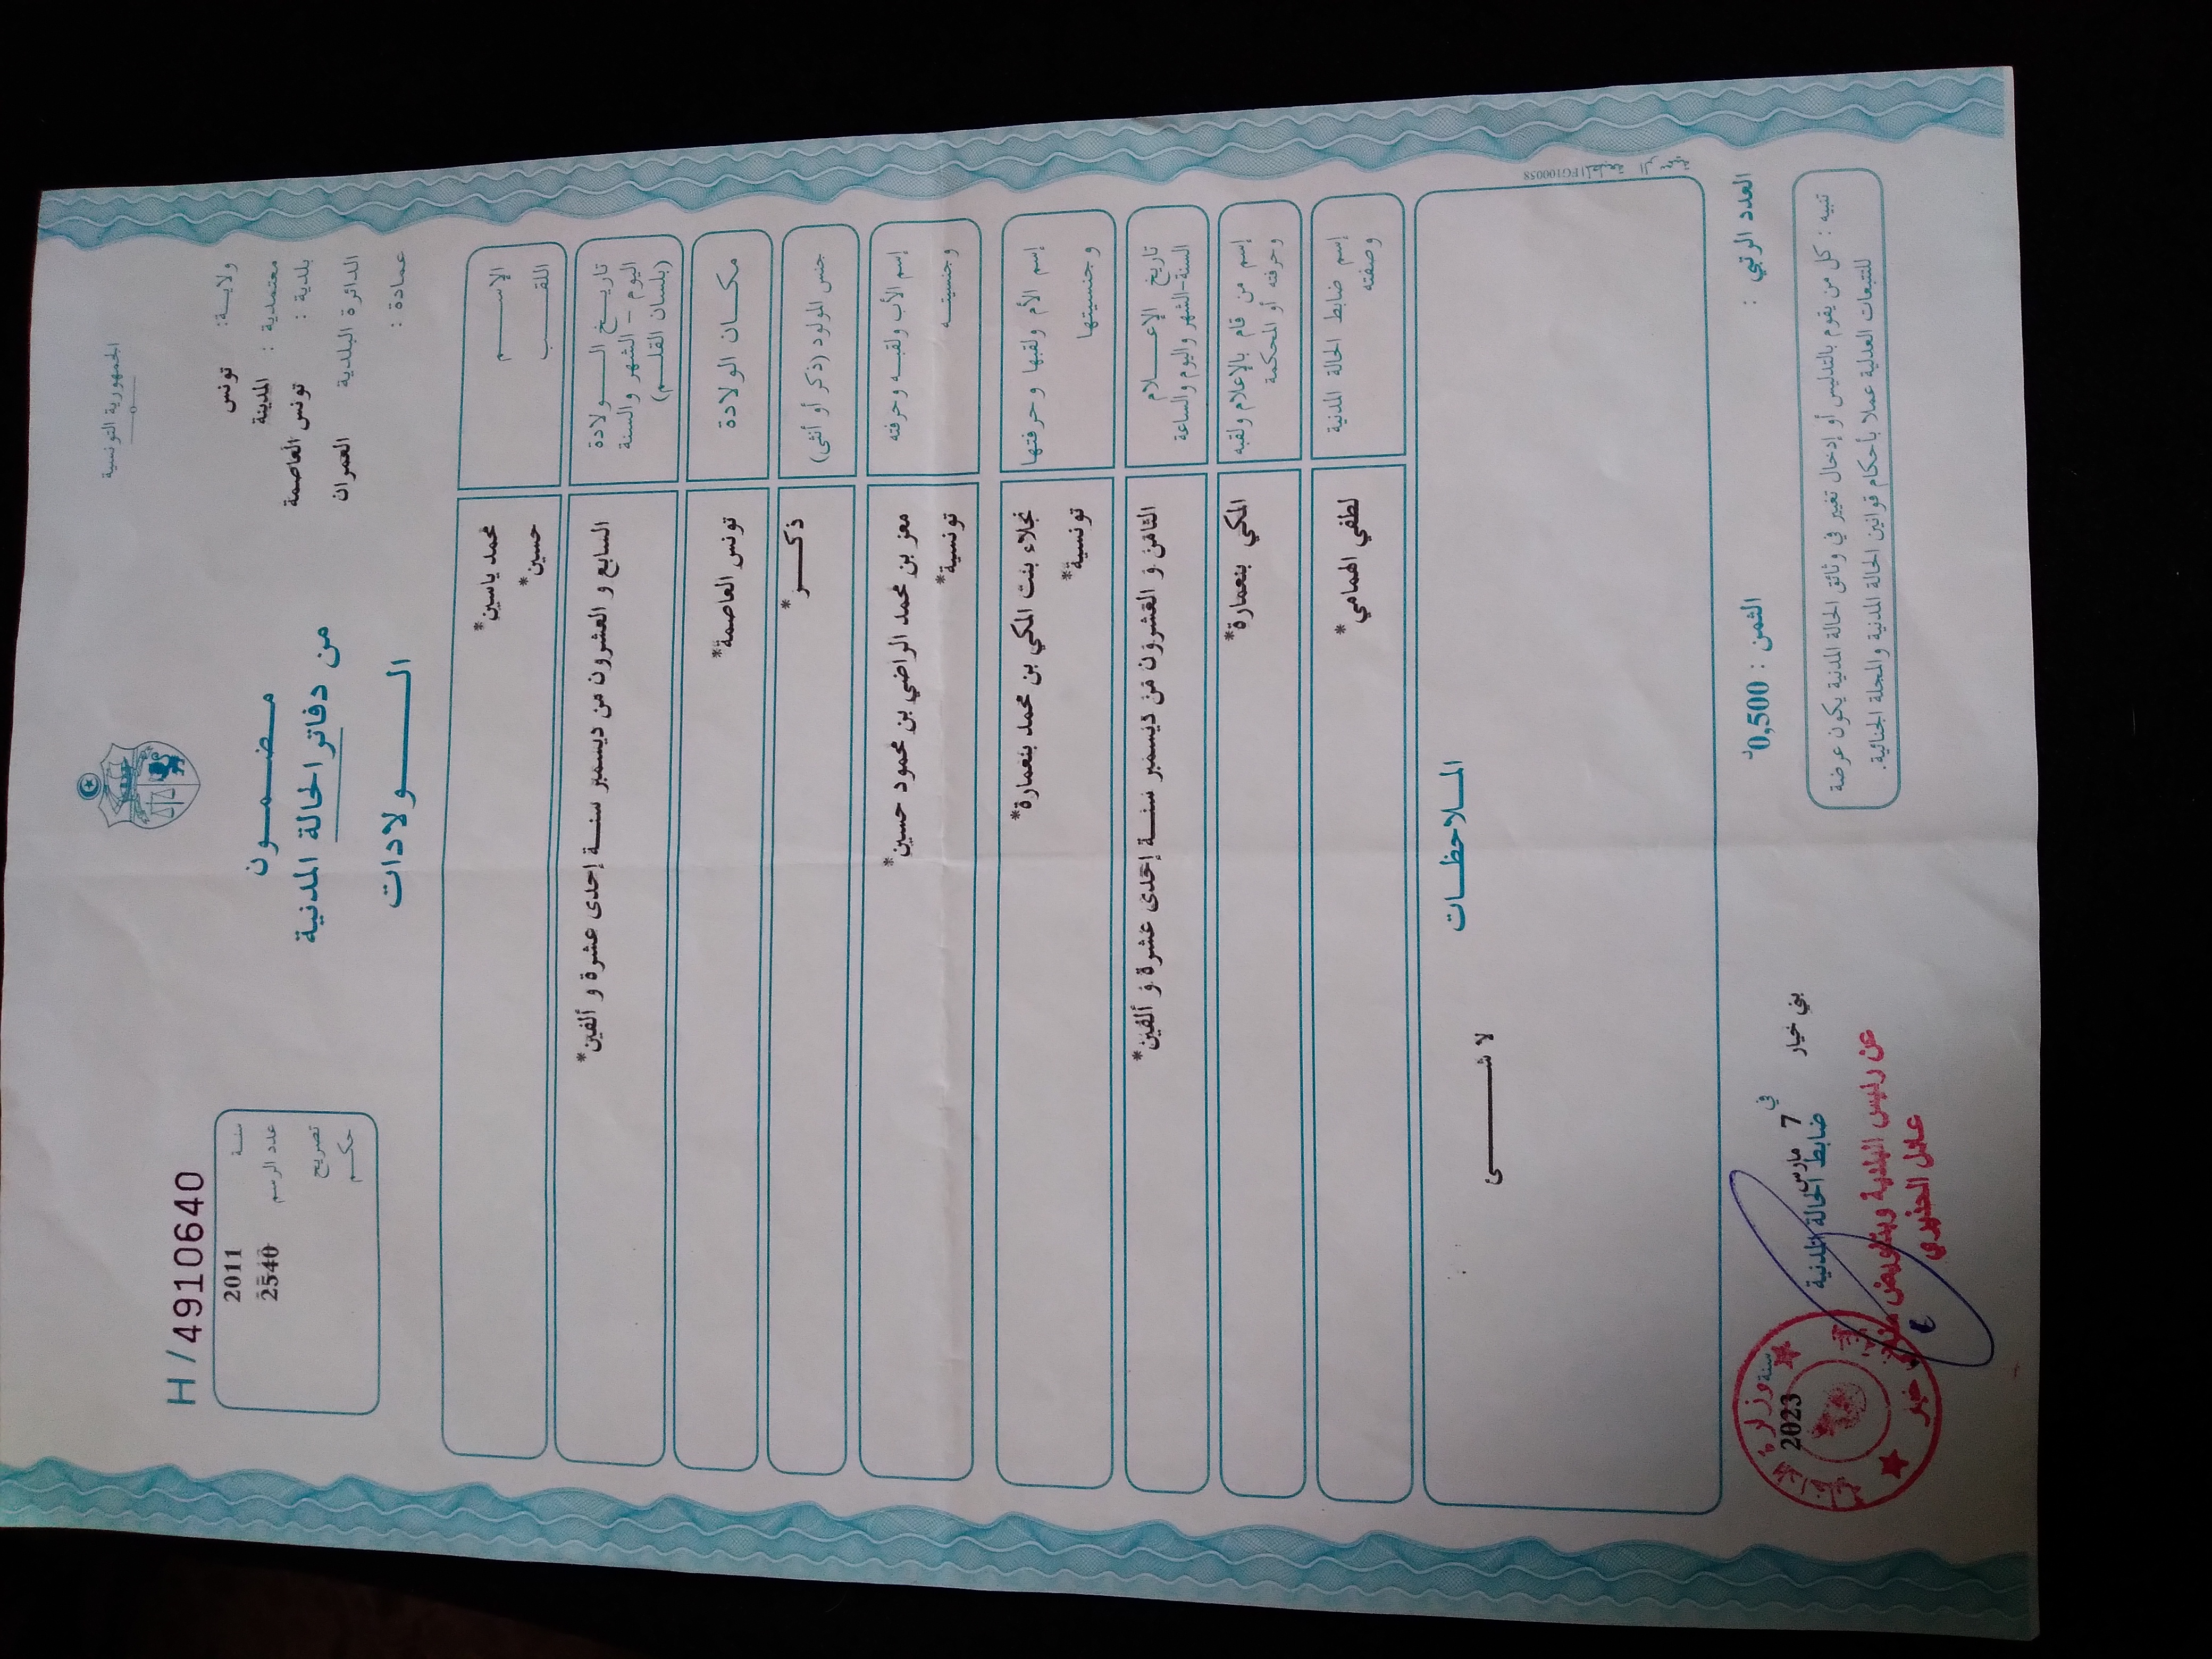 الجمهورية التونسية
ولاية: تونس
معتمدية : المدينة
بلدية : تونس العاصمة
الدائرة البلدية العمران
عمادة :
مضمون
من دفاتر الحالة المدنية
الولادات
H / 4910640
سنة 2011
عدد الرسم 2540
تصريح
حكم
الإسم محمد ياسين*
اللقب حسين*
تاريخ الولادة
اليوم - الشهر والسنة
(بلسان القلم)
السابع و العشرون من ديسمبر سنة إحدى عشرة و ألفين*
مكان الولادة تونس العاصمة*
جنس المولود (ذكر أو أنثى) ذكر*
إسم الأب ولقبه وحرفته معز بن محمد الراضي بن محمود حسين*
وجنسيته تونسية*
إسم الأم ولقبها وحرفتها نجلاء بنت المكي بن محمد بنعمارة*
وجنسيتها تونسية*
تاريخ الإعلام
السنة-الشهر واليوم والساعة
الثامن و العشرون من ديسمبر سنة إحدى عشرة و ألفين*
إسم من قام بالإعلام ولقبه
وحرفته أو المحكمة
المكي بنعمارة*
إسم ضابط الحالة المدنية
وصفته
لطفي الهمامي*
الملاحظات
لا شئ
العدد الرتبي :
الثمن : 0,500 د
بني خيار في 7 مارس سنة 2023
ضابط الحالة المدنية
عن رئيس البلدية وبتفويض منه
تنبيه : كل من يقوم بالتدليس أو إدخال تغيير في وثائق الحالة المدنية يكون عرضة
للتتبعات العدلية عملا بأحكام قوانين الحالة المدنية والمجلة الجنائية.